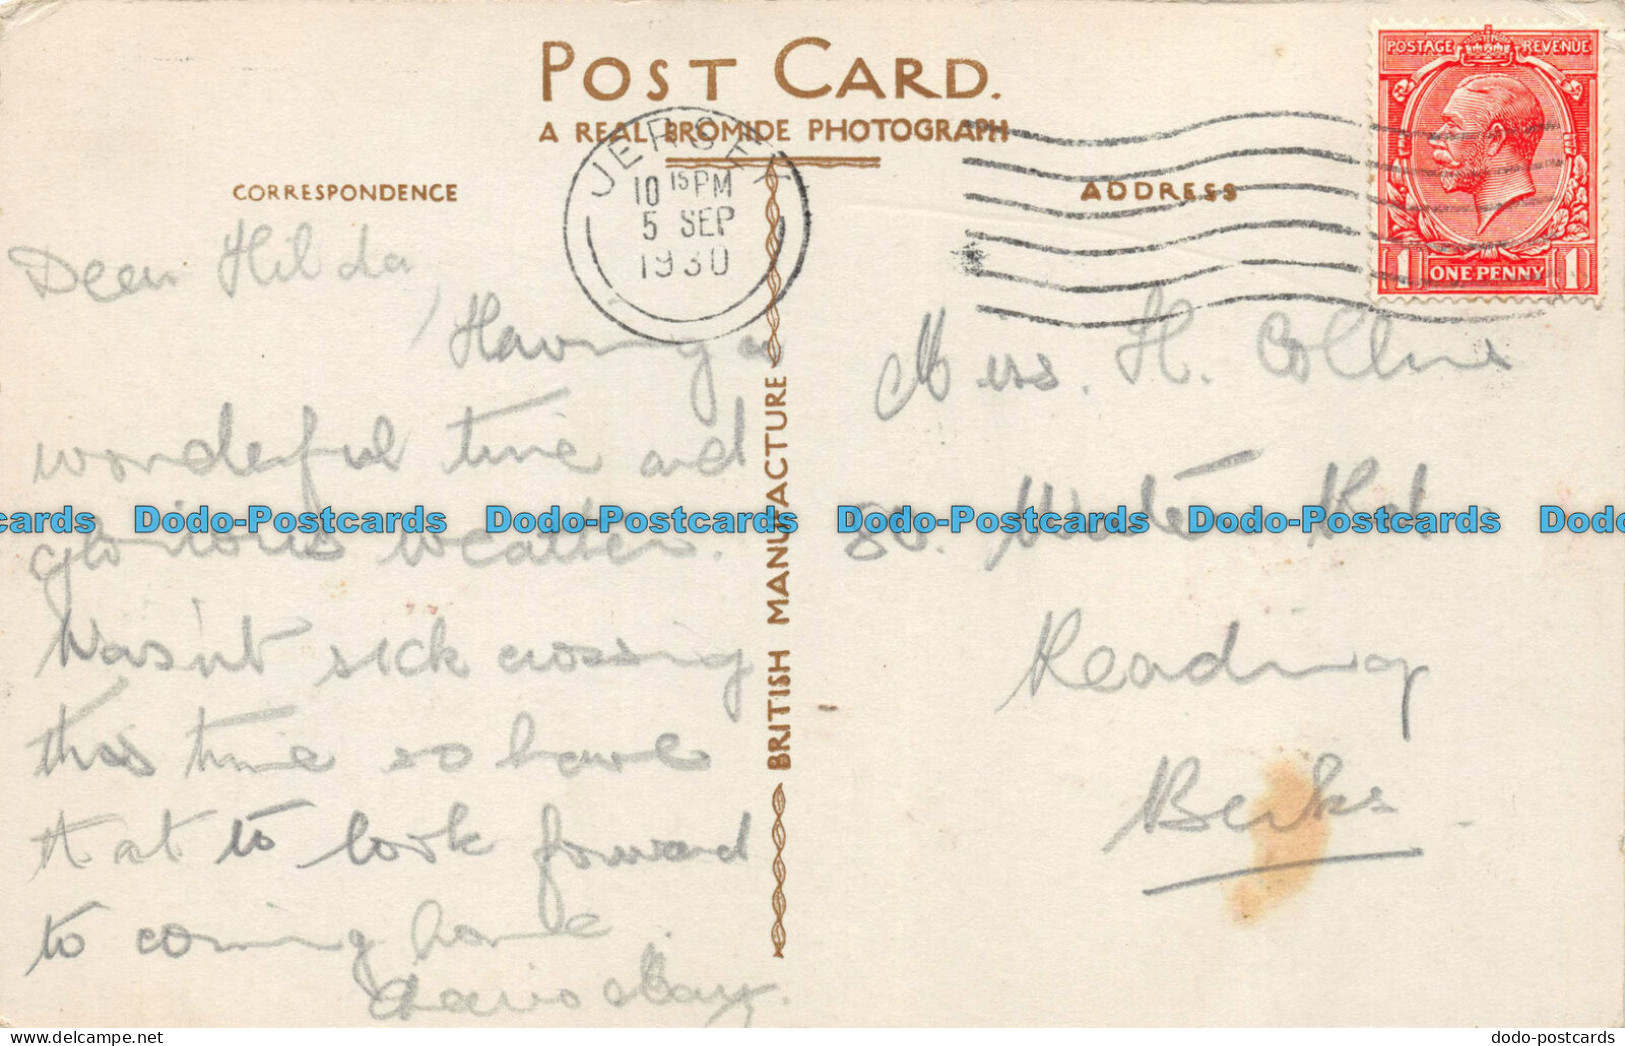 POST CARD.
A REAL BROMIDE PHOTOGRAPH
CORRESPONDENCE
ADDRESS
JERSEY
10 15 PM
5 SEP
1930
POSTAGE REVENUE
1 ONE PENNY 1
BRITISH MANUFACTURE
Dear Hilda,
Having a
wonderful time and
glorious weather.
Wasn't sick crossing
this time so have
that to look forward
to coming home.
May.
Miss. H. Collins
80. Water Rd
Reading
Berks
cards Dodo-Postcards Dodo-Postcards Dodo-Postcards Dodo-Postcards Dodo
dodo-postcards